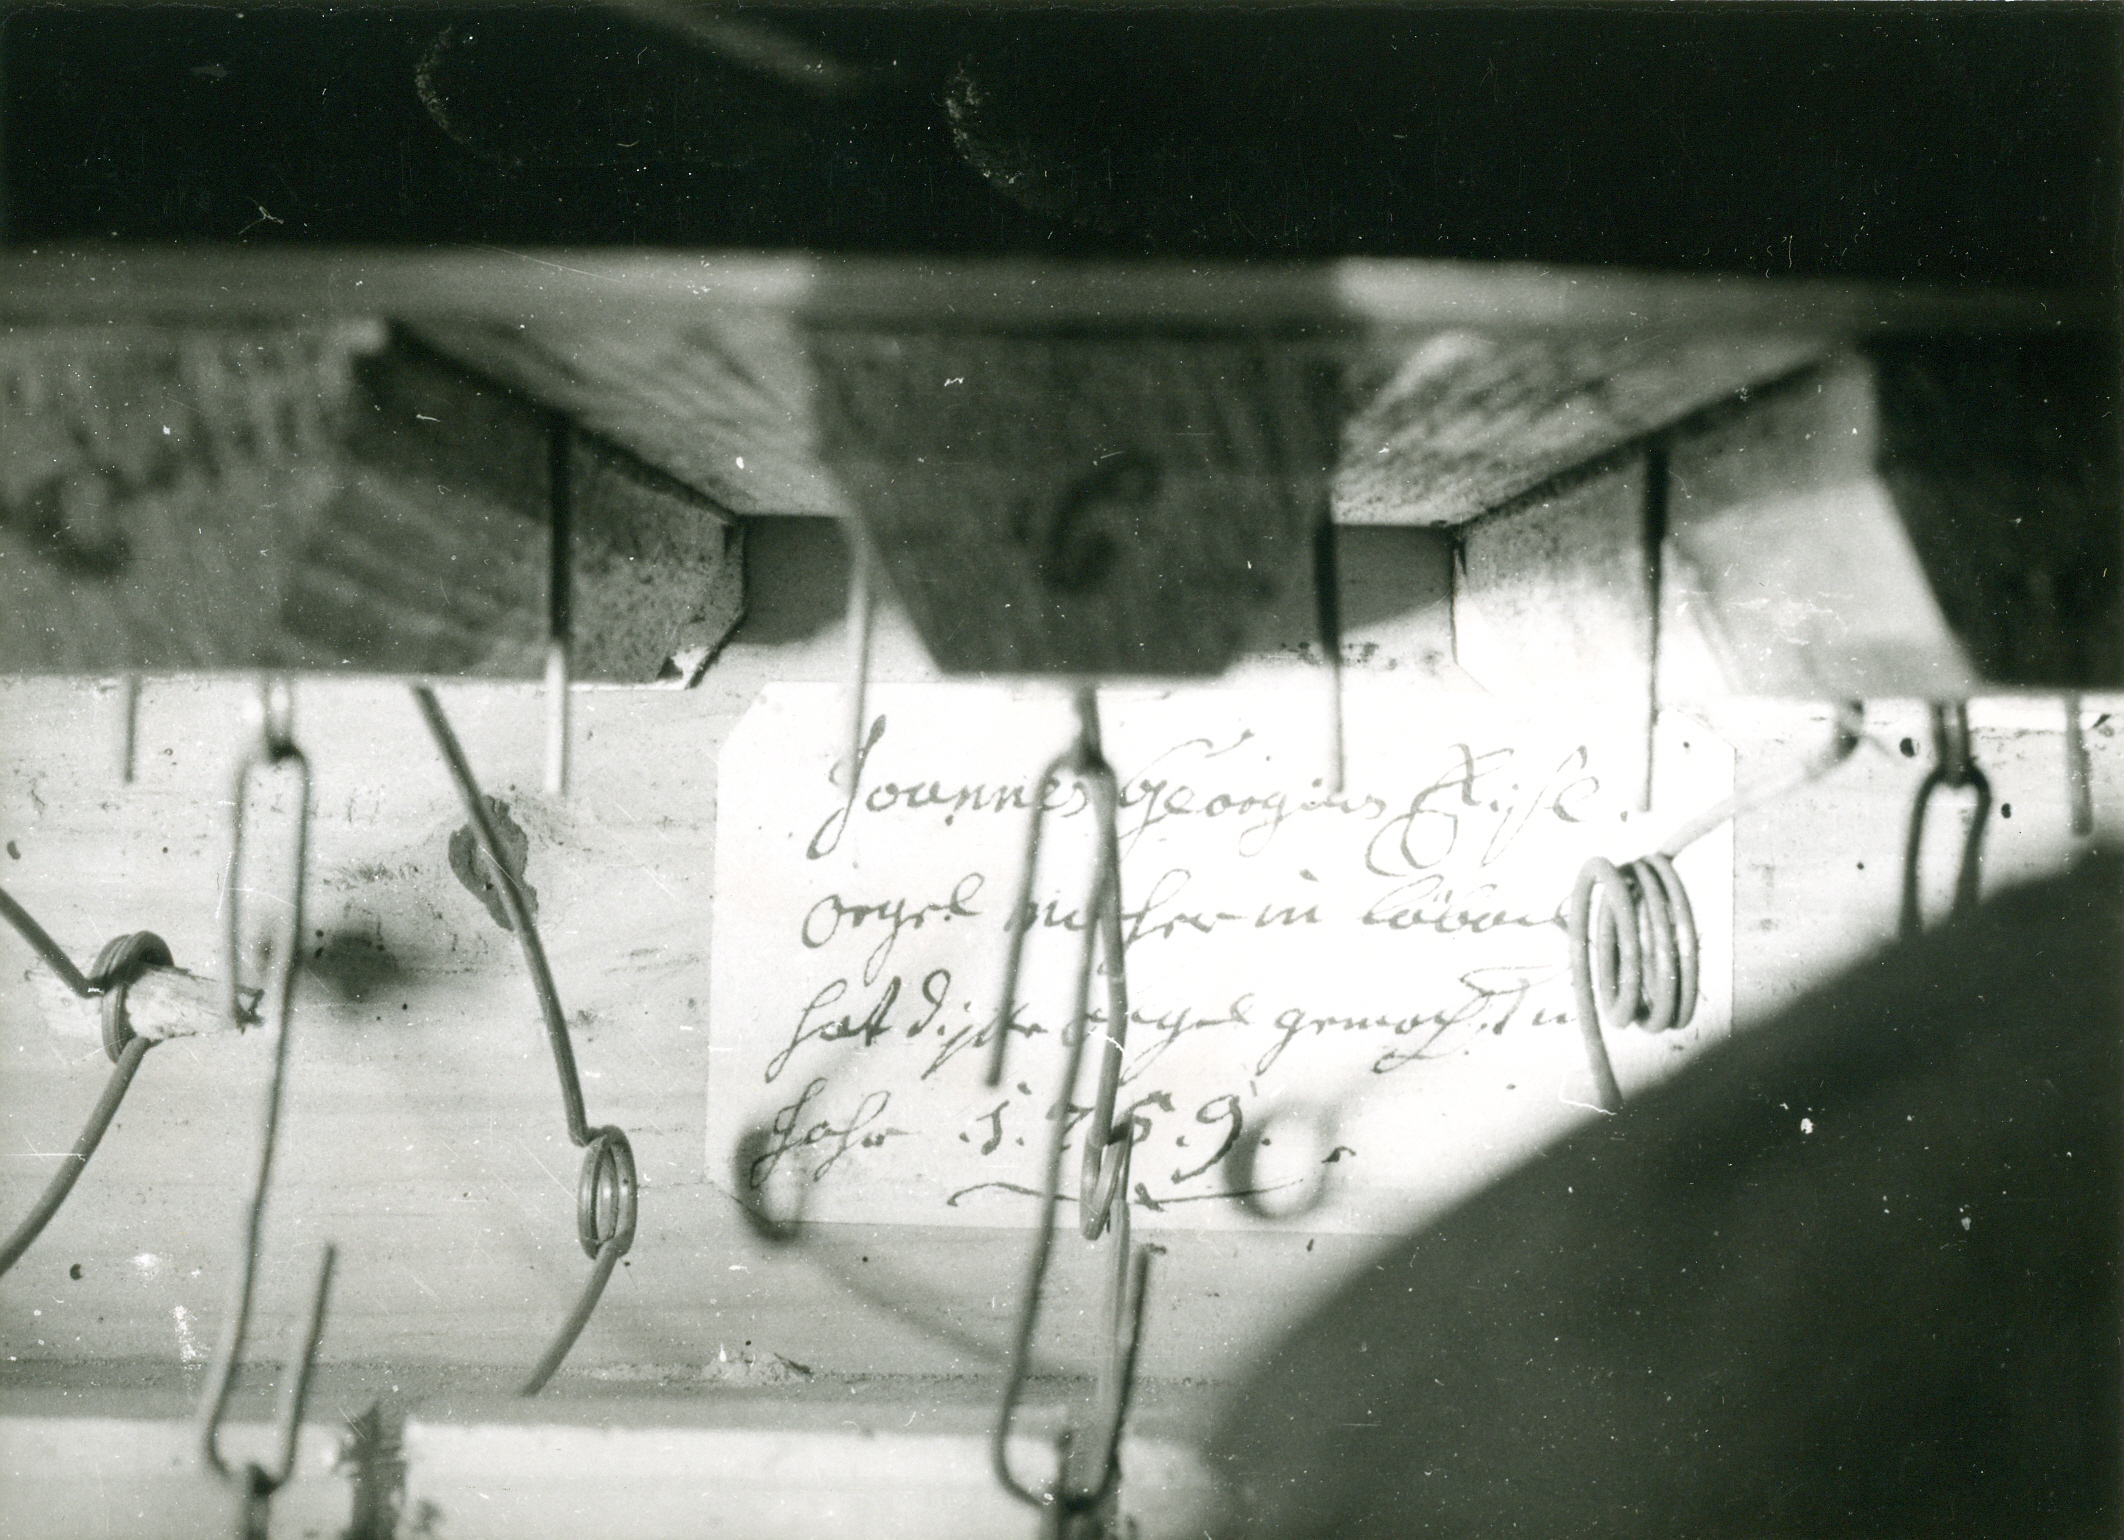 6
Joannes Georgius Eijsl.
Orgel macher in
hat dijse orgel gemacht in
Jahr .1.7.5.9.